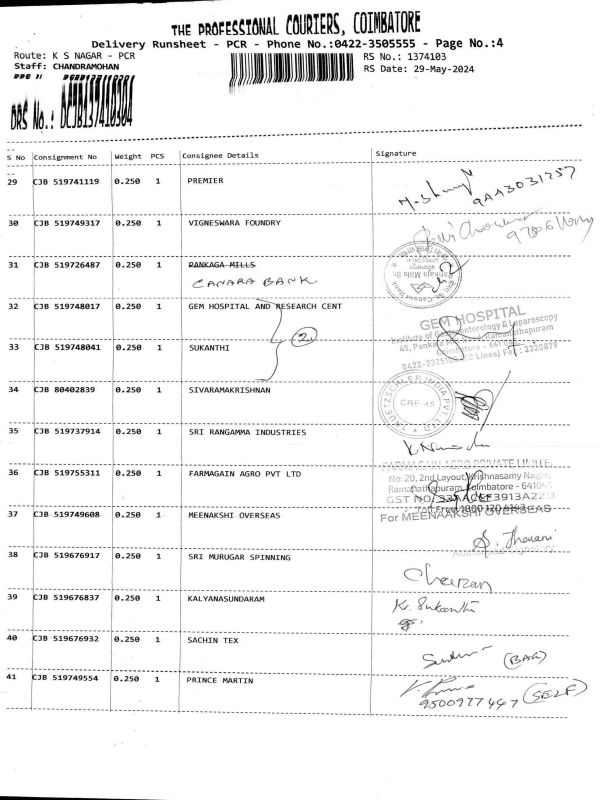 THE PROFESSIONAL COURIERS, COIMBATORE
Delivery Runsheet - PCR - Phone No.:0422-3505555 - Page No.:4
Route: K S NAGAR - PCR
RS No.: 1374103
Staff: CHANDRAMOHAN
RS Date: 29-May-2024
DRS No.: DCJB137410304
S No Consignment No Weight PCS Consignee Details Signature
29 CJB 519741119 0.250 1 PREMIER
9AA3031257
30 CJB 519749317 0.250 1 VIGNESWARA FOUNDRY
31 CJB 519726487 0.250 1 PANKAGA MILLS
CANARA BANK
32 CJB 519748017 0.250 1 GEM HOSPITAL AND RESEARCH CENT
2
GEM HOSPITAL
Institute of Gastroenterology & Laparoscopy
45, Pankaja Mill Road, Ramanathapuram
33 CJB 519748041 0.250 1 SUKANTHI
34 CJB 80402839 0.250 1 SIVARAMAKRISHNAN
CBE-45
35 CJB 519737914 0.250 1 SRI RANGAMMA INDUSTRIES
36 CJB 519755311 0.250 1 FARMAGAIN AGRO PVT LTD
FARMAGAIN AGRO PRIVATE LIMITED
No: 20, 2nd Layout, Krishnasamy Nagar,
Ramanathapuram, Coimbatore - 641045
37 CJB 519749608 0.250 1 MEENAKSHI OVERSEAS
For MEENAAKSHI OVERSEAS
38 CJB 519676917 0.250 1 SRI MURUGAR SPINNING
39 CJB 519676837 0.250 1 KALYANASUNDARAM
K. Sukanthi
40 CJB 519676932 0.250 1 SACHIN TEX
(BAG)
41 CJB 519749554 0.250 1 PRINCE MARTIN
9500977447 (SELF)